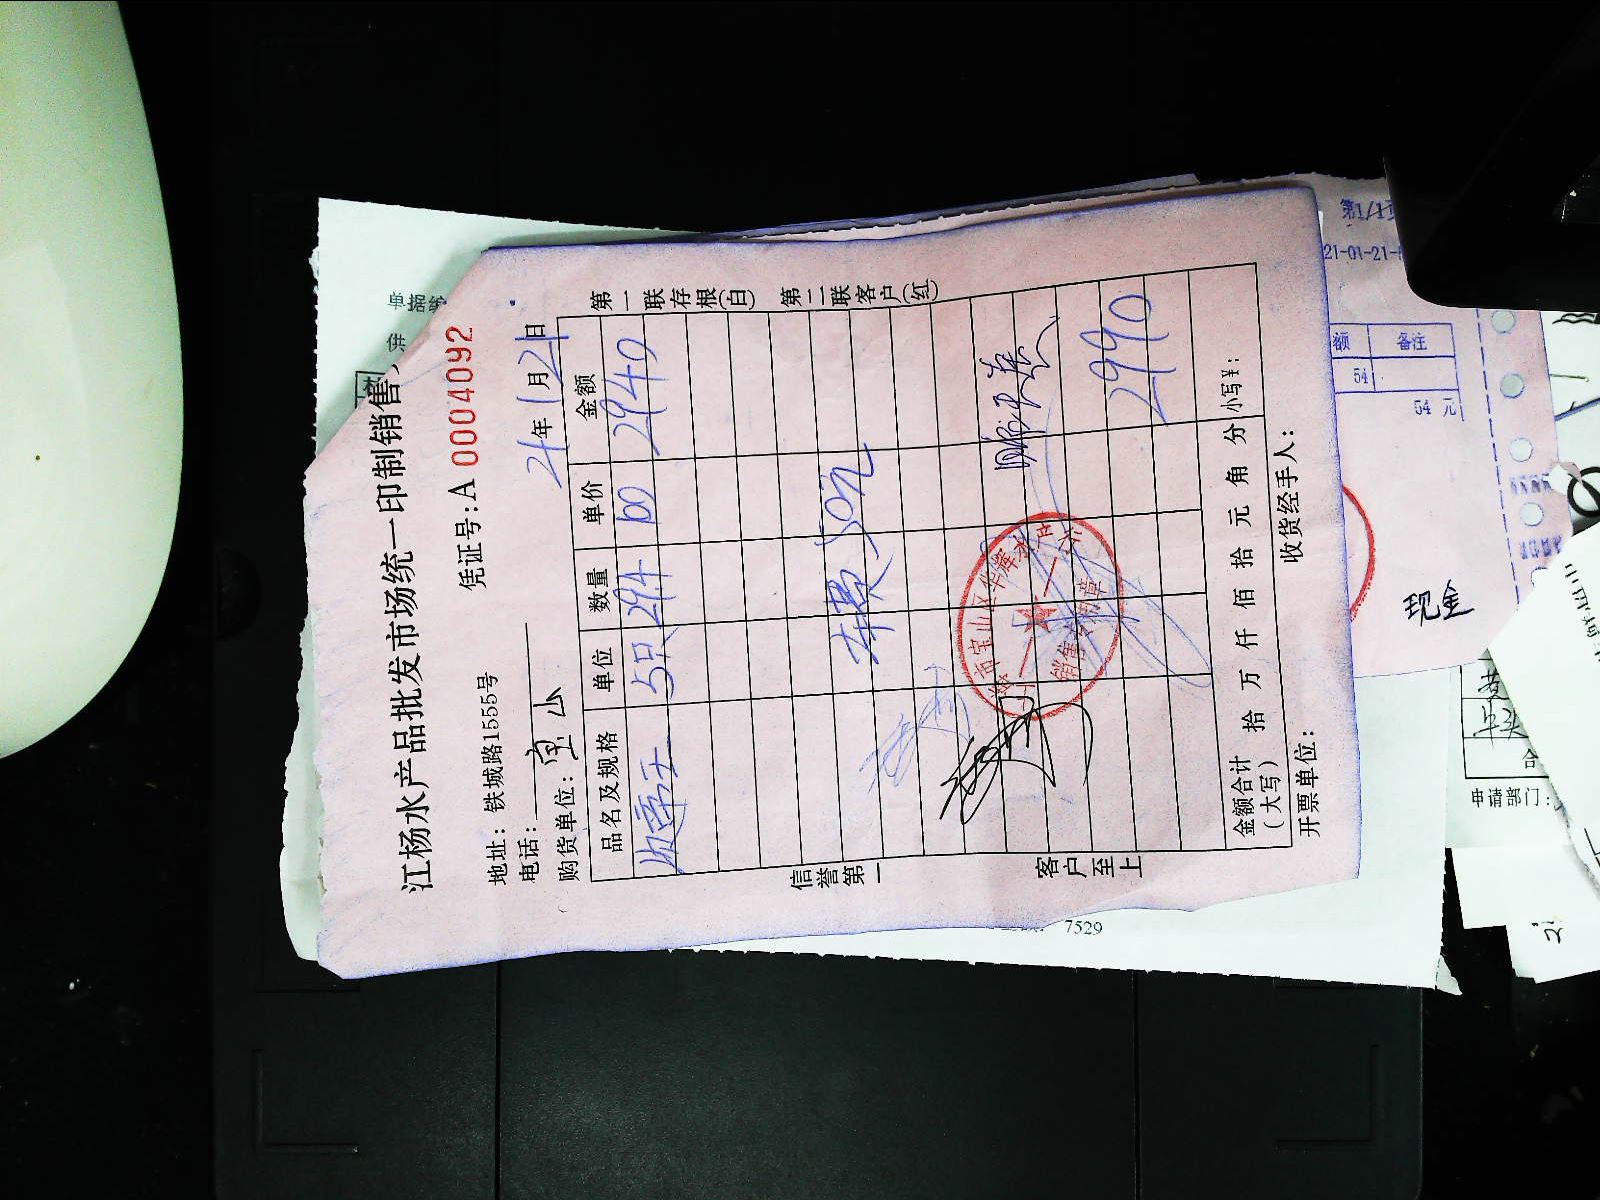 江杨水产品批发市场统一印制销售
凭证号:A 0004092
地址: 铁城路1555号
电话:
购货单位: 宝山
21年1月21日
品名及规格 单位 数量 单价 金额
5只 29.4 100 2940
车费 50元
2990
金额合计(大写) 拾 万 仟 佰 拾 元 角 分 小写¥:
开票单位: 收货经手人:
第一联存根(白) 第二联客户(红)
信誉第一
客户至上
销售专用章
7529
第1/1页
21-01-21-
额 备注
54
54 元
现金
申请部门: